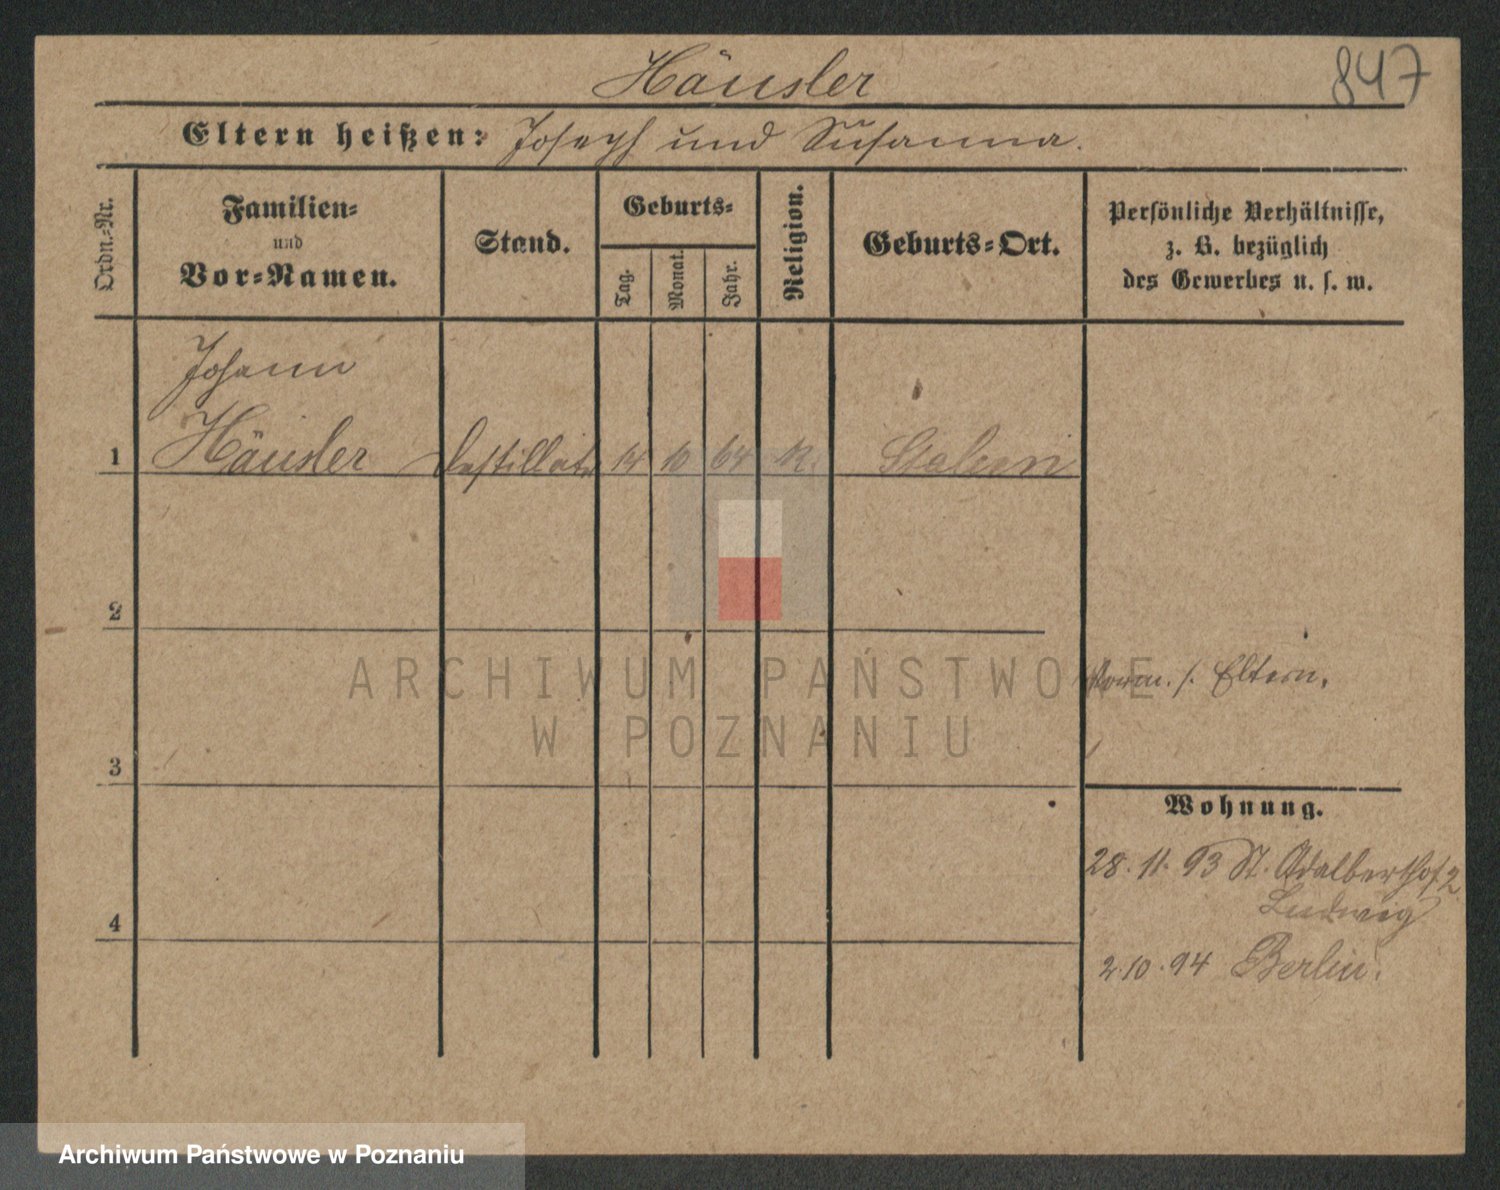 Häusler
847
Eltern heißen: Joseph und Susanna.
Ordn.-Nr.
Familien-
und
Vor-Namen.
Stand.
Geburts-
Tag.
Monat.
Jahr.
Religion.
Geburts-Ort.
Persönliche Verhältnisse,
z. B. bezüglich
des Gewerbes u. s. w.
Johann
1 Häusler Destillat 14 10 64 K.
2
s. Eltern.
3
Wohnung.
28. 11. 93 St. Adalberthof 2
Ludwig
4
2.10.94 Berlin.
ARCHIWUM PAŃSTWOWE
W POZNANIU
Archiwum Państwowe w Poznaniu